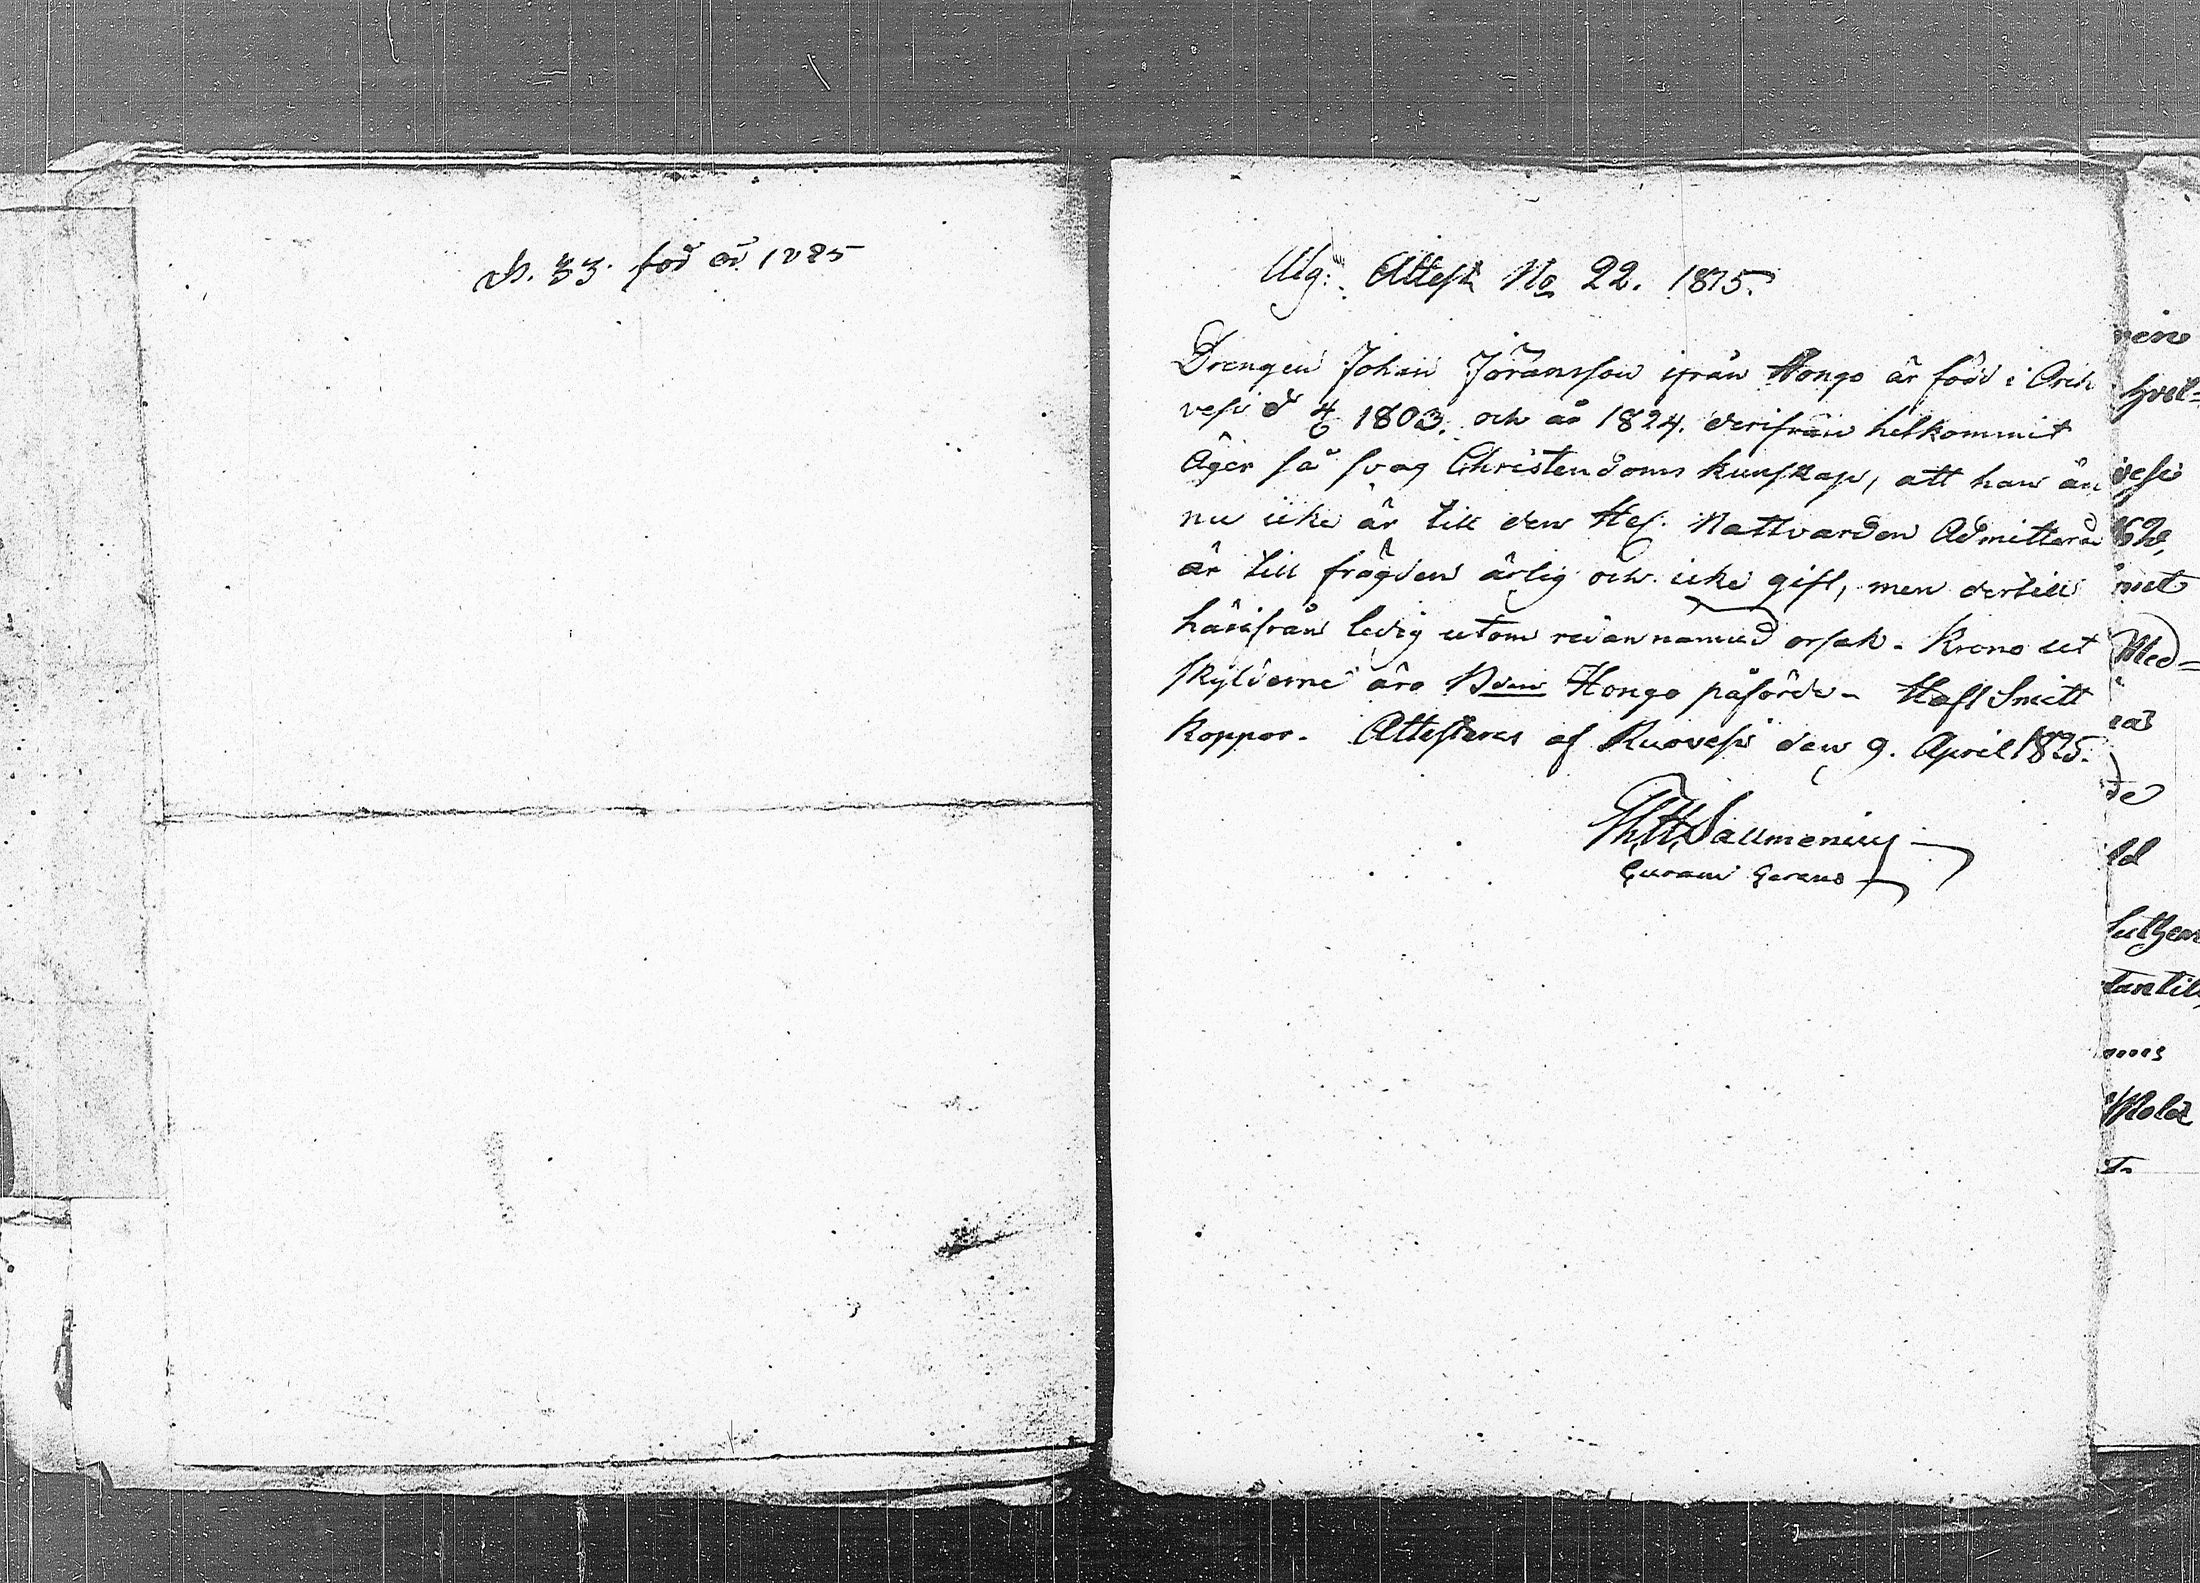 N. 33. för år 1825
Utg: Attest No 22. 1825.
Drengen Johan Jöransson ifrån Hongo är född i Ori
vesi d 4/6 1803. och år 1824. derifrån hitkommit
Äger så svag Christendoms kunskap, att han än
nu icke är till den Hel. Nattvarden Admitterad
är till frägden ärlig och icke gift, men dertill
härifrån ledig utom redannamnd orsak. Krono ut
skylderne äro Hongo påförde. Haft Smitt
koppor. Attesteras af Ruovesi den 9. April 1825.
Th. H. Saxmenius
hvil=
vesi
met
Med=
de
ld
luther